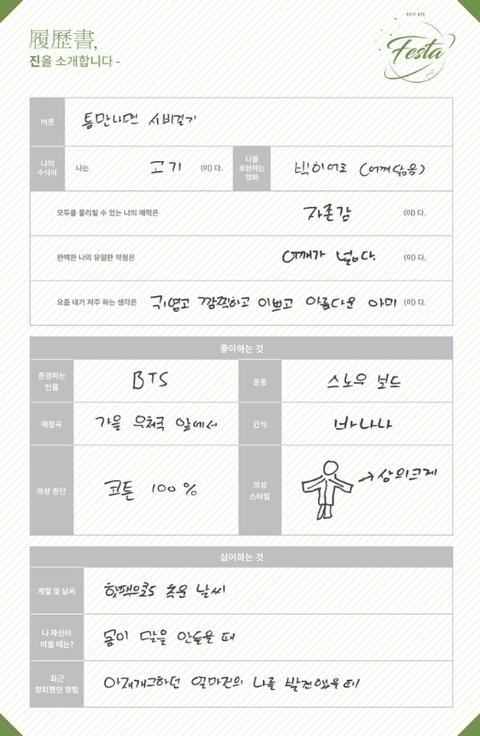 2017 BTS
Festa
履歷書,
진을 소개합니다 -
버릇 틈만나면 시비걸기
나의 수식어 나는 고기 (이) 다. 나를 표현하는 영화 빅히어로 (어깨닮음)
모두를 홀릴 수 있는 나의 매력은 자존감 (이) 다.
완벽한 나의 유일한 약점은 어깨가 넓다. (이) 다.
요즘 내가 자주 하는 생각은 귀엽고 깜찍하고 이쁘고 아름다운 아미 (이) 다.
좋아하는 것
존경하는 인물 BTS 운동 스노우 보드
애창곡 가을 우체국 앞에서 간식 바나나
의상 원단 코튼 100 % 의상 스타일 → 상의크게
싫어하는 것
계절 및 날씨 추운 날씨
나 자신이 미울 때는? 몸이 말을 안들을 때
최근 창피했던 경험 아재개그하던 나를 발견했을 때